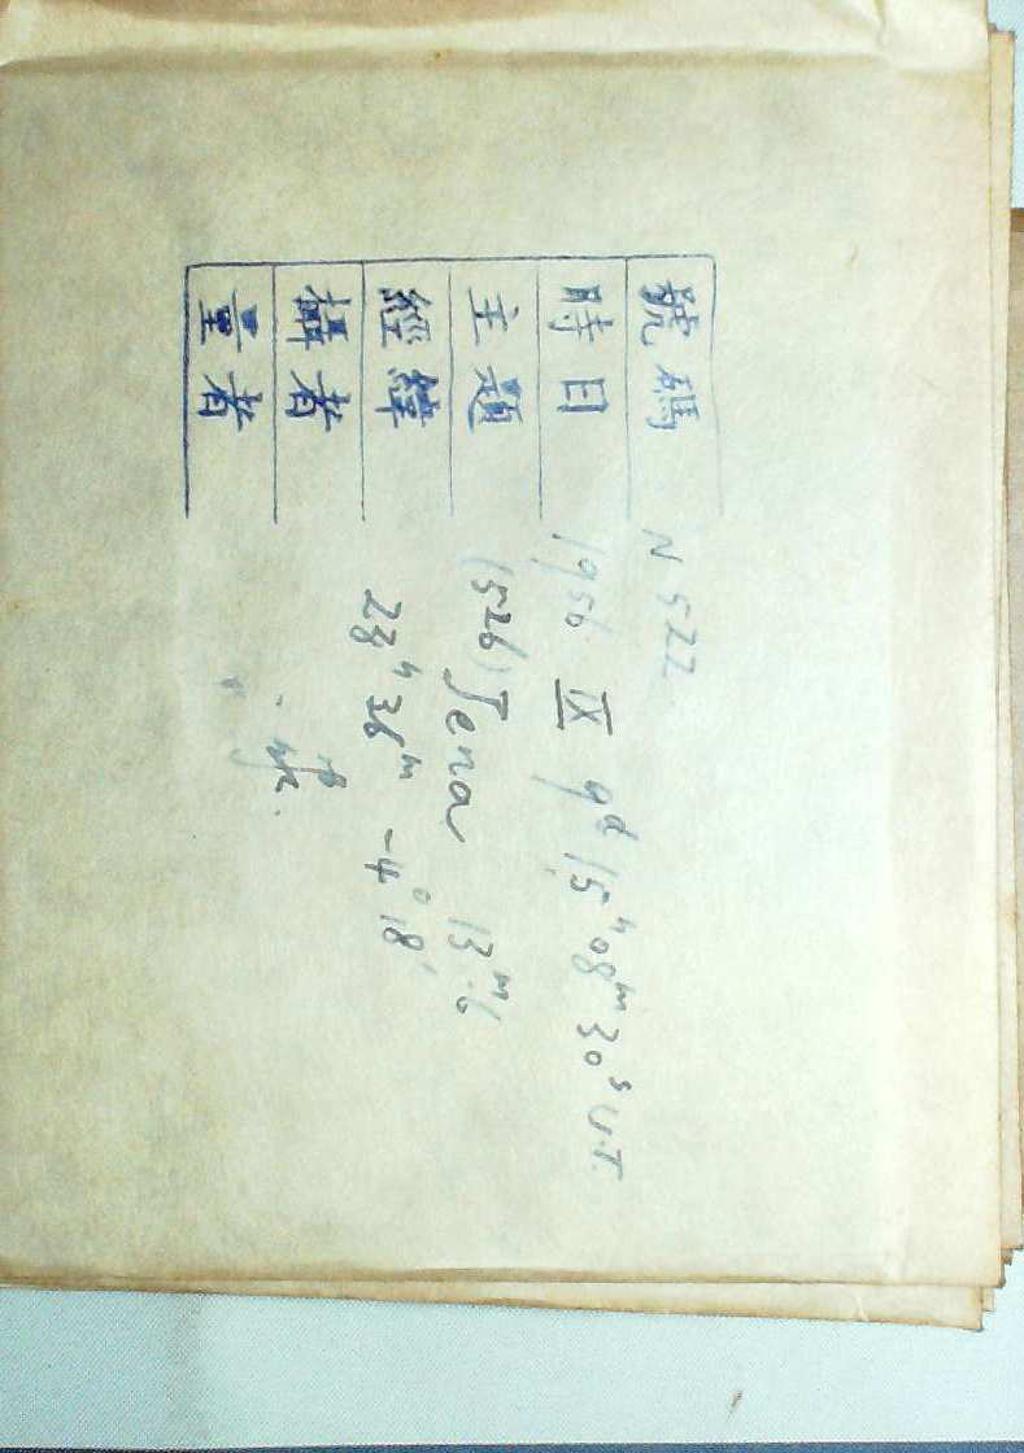 號碼 N 522
時日 1956 IX 9d 15h 08m 30s U.T.
主題 (526) Jena 13m.6
經緯 23h 36m -4° 18′
攝者
量者